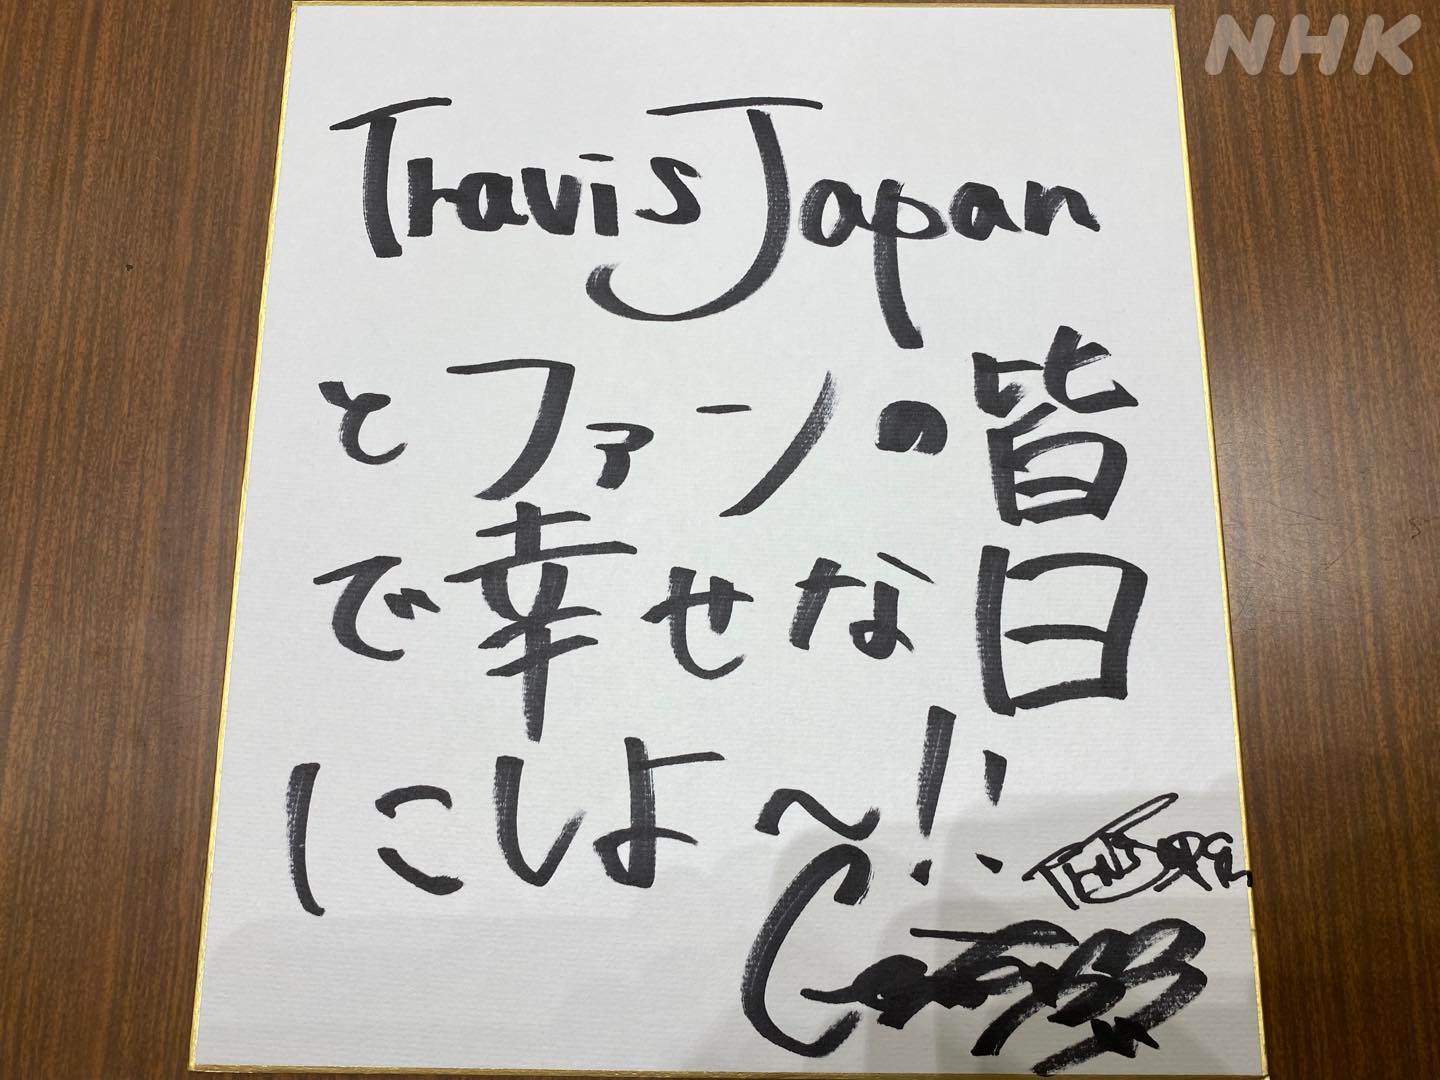 NHK
Travis Japan
とファンの皆
で幸せな日
にしよ〜!!